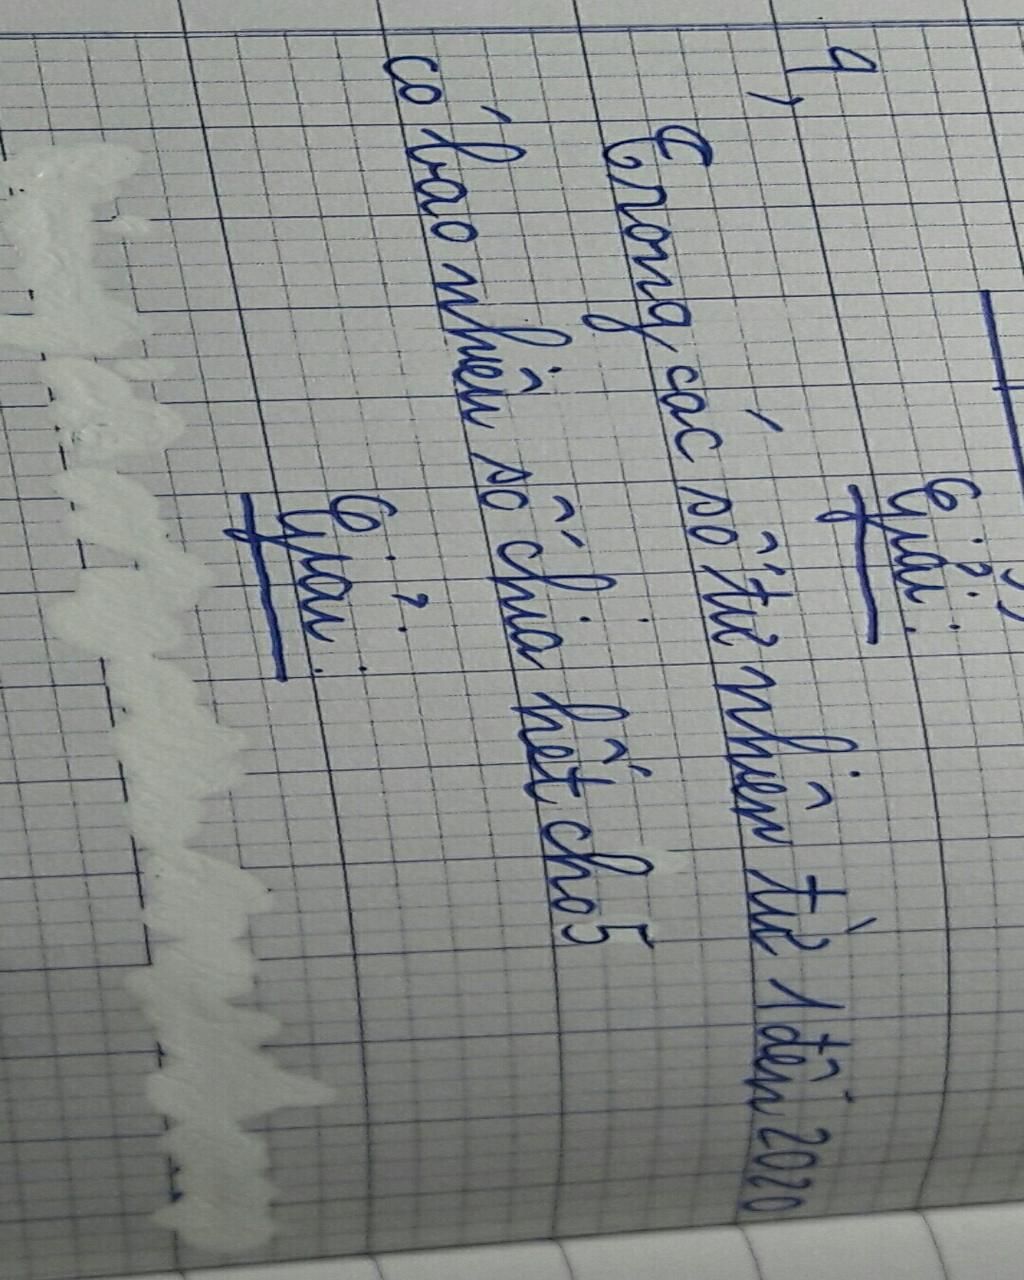 Giải:
9,
Trong các số tự nhiên từ 1 đến 2020
có bao nhiêu số chia hết cho 5
Giải: